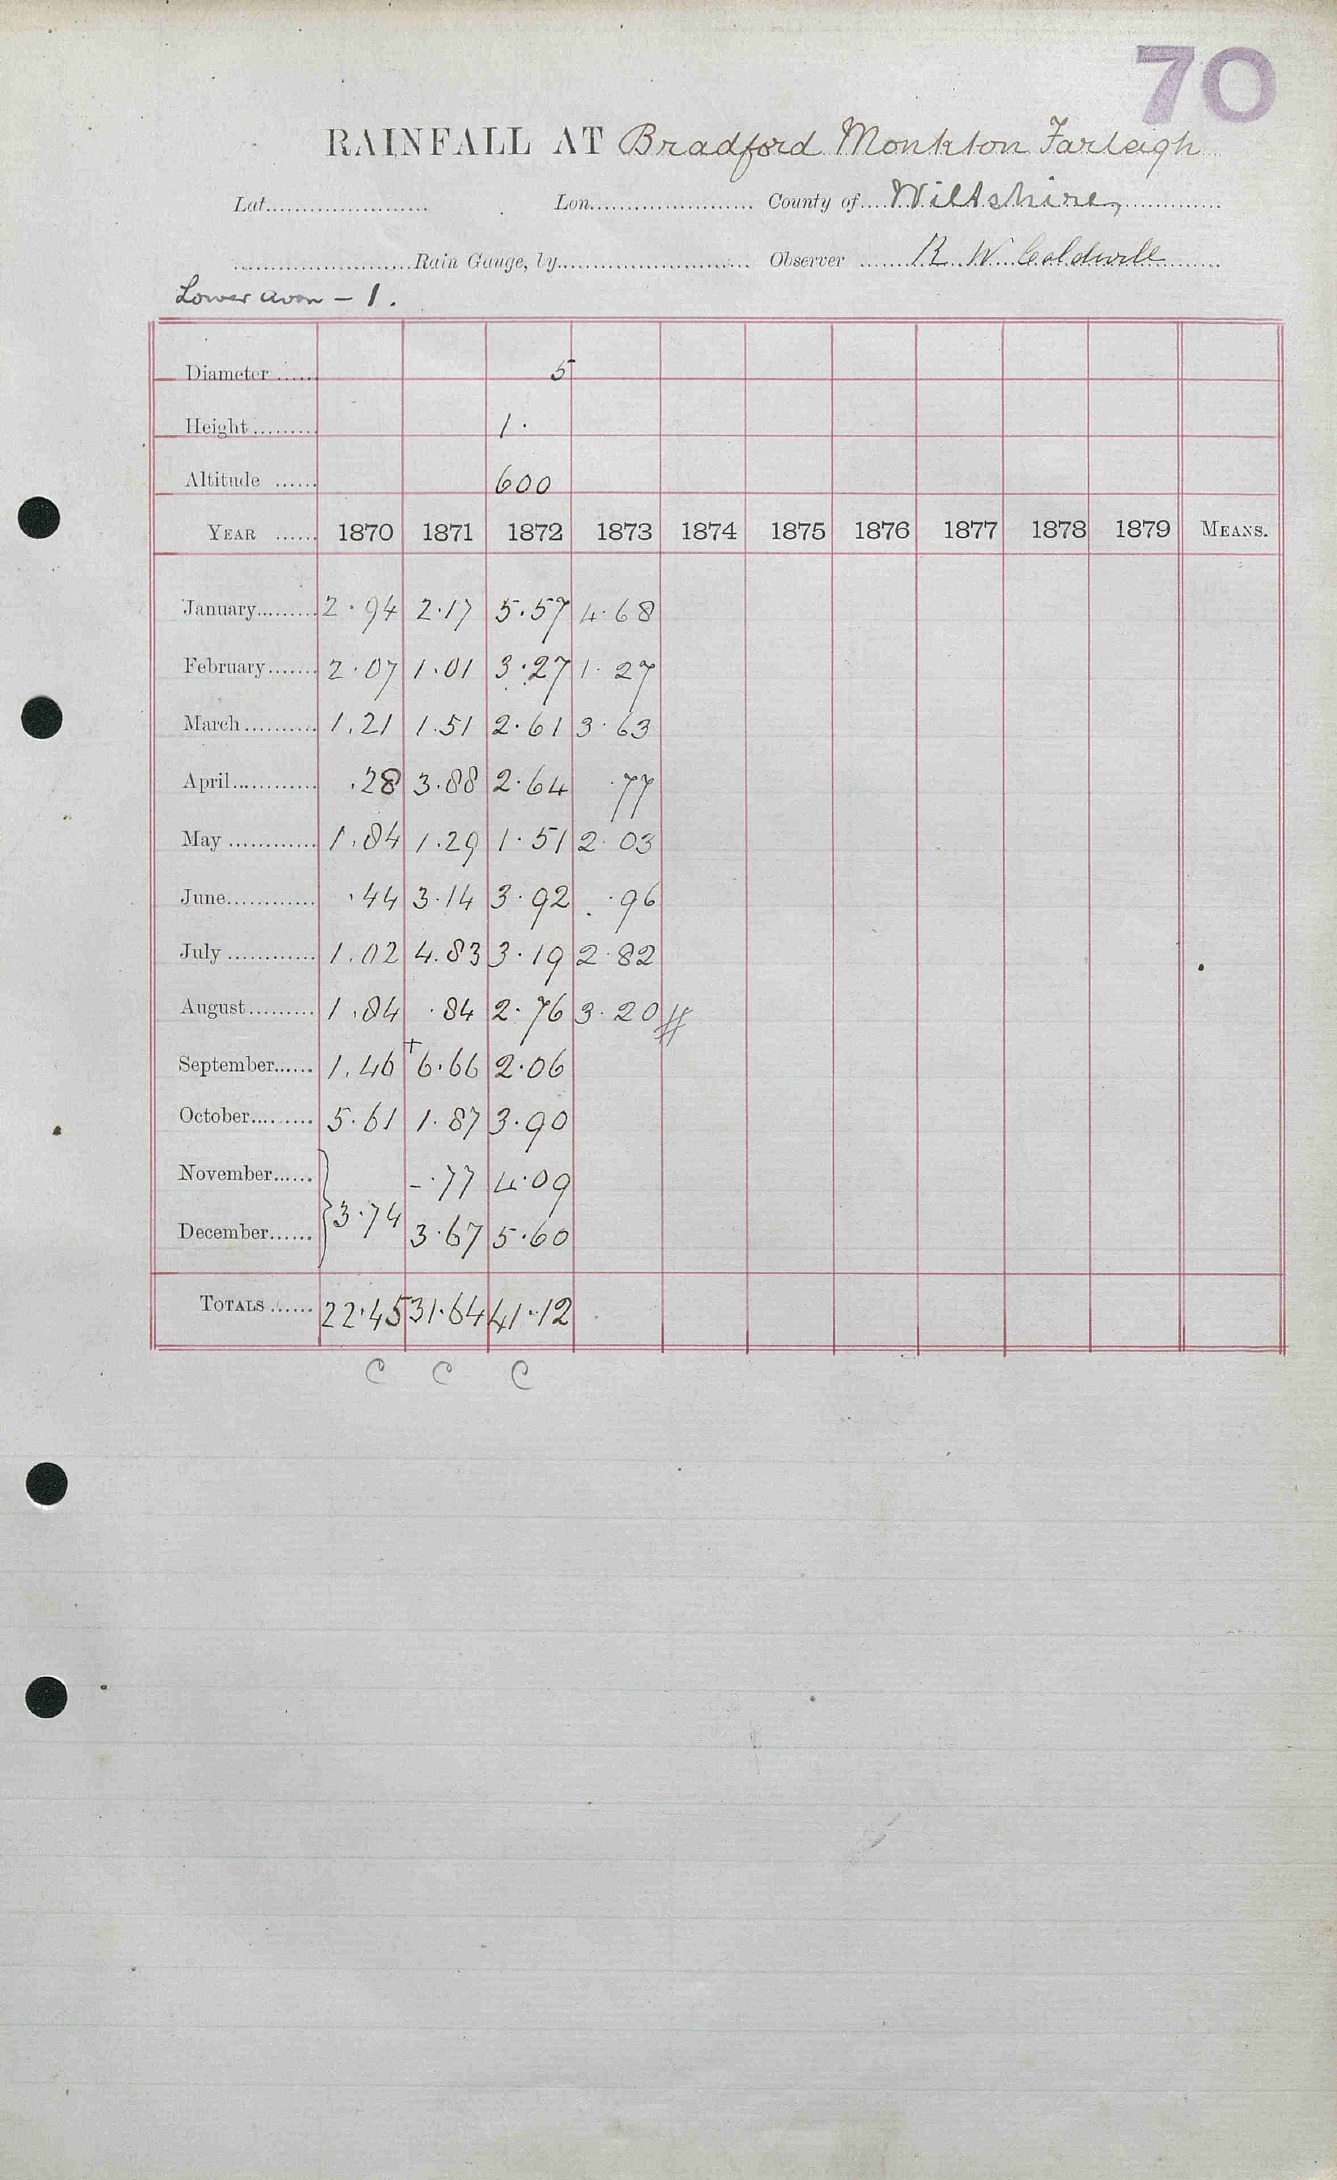 70
RAINFALL AT Bradford Monkton Farleigh
Lat. Lon. County of Wiltshire,
Rain Gauge, by Observer R. W. Caldwell
Lower Avon - 1.
Diameter 5
Height 1.
Altitude 600
YEAR 1870 1871 1872 1873 1874 1875 1876 1877 1878 1879 MEANS.
January 2.94 2.17 5.57 4.68
February 2.07 1.01 3.27 1.27
March 1.21 1.51 2.61 3.63
April .28 3.88 2.64 .77
May 1.84 1.29 1.51 2.03
June .44 3.14 3.92 .96
July 1.02 4.83 3.19 2.82
August 1.84 .84 2.76 3.20 #
September 1.46 +6.66 2.06
October 5.61 1.87 3.90
November -.77 4.09
} 3.74
December 3.67 5.60
TOTALS 22.45 31.64 41.12
C C C